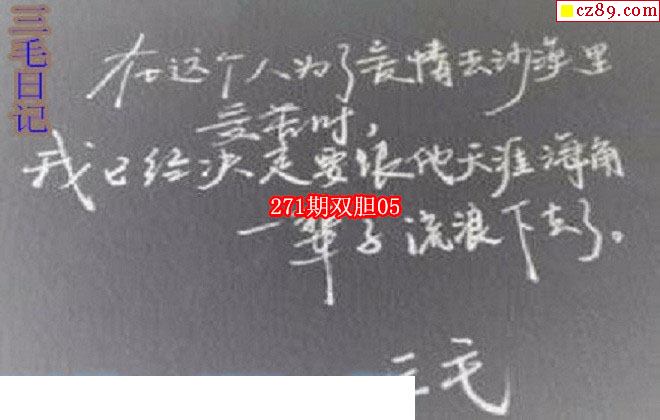 cz89.com
三毛日记
在这个人为了爱情去沙漠里
受苦时,
我已经决定要跟他天涯海角
271期双胆05
一辈子流浪下去了。
三毛